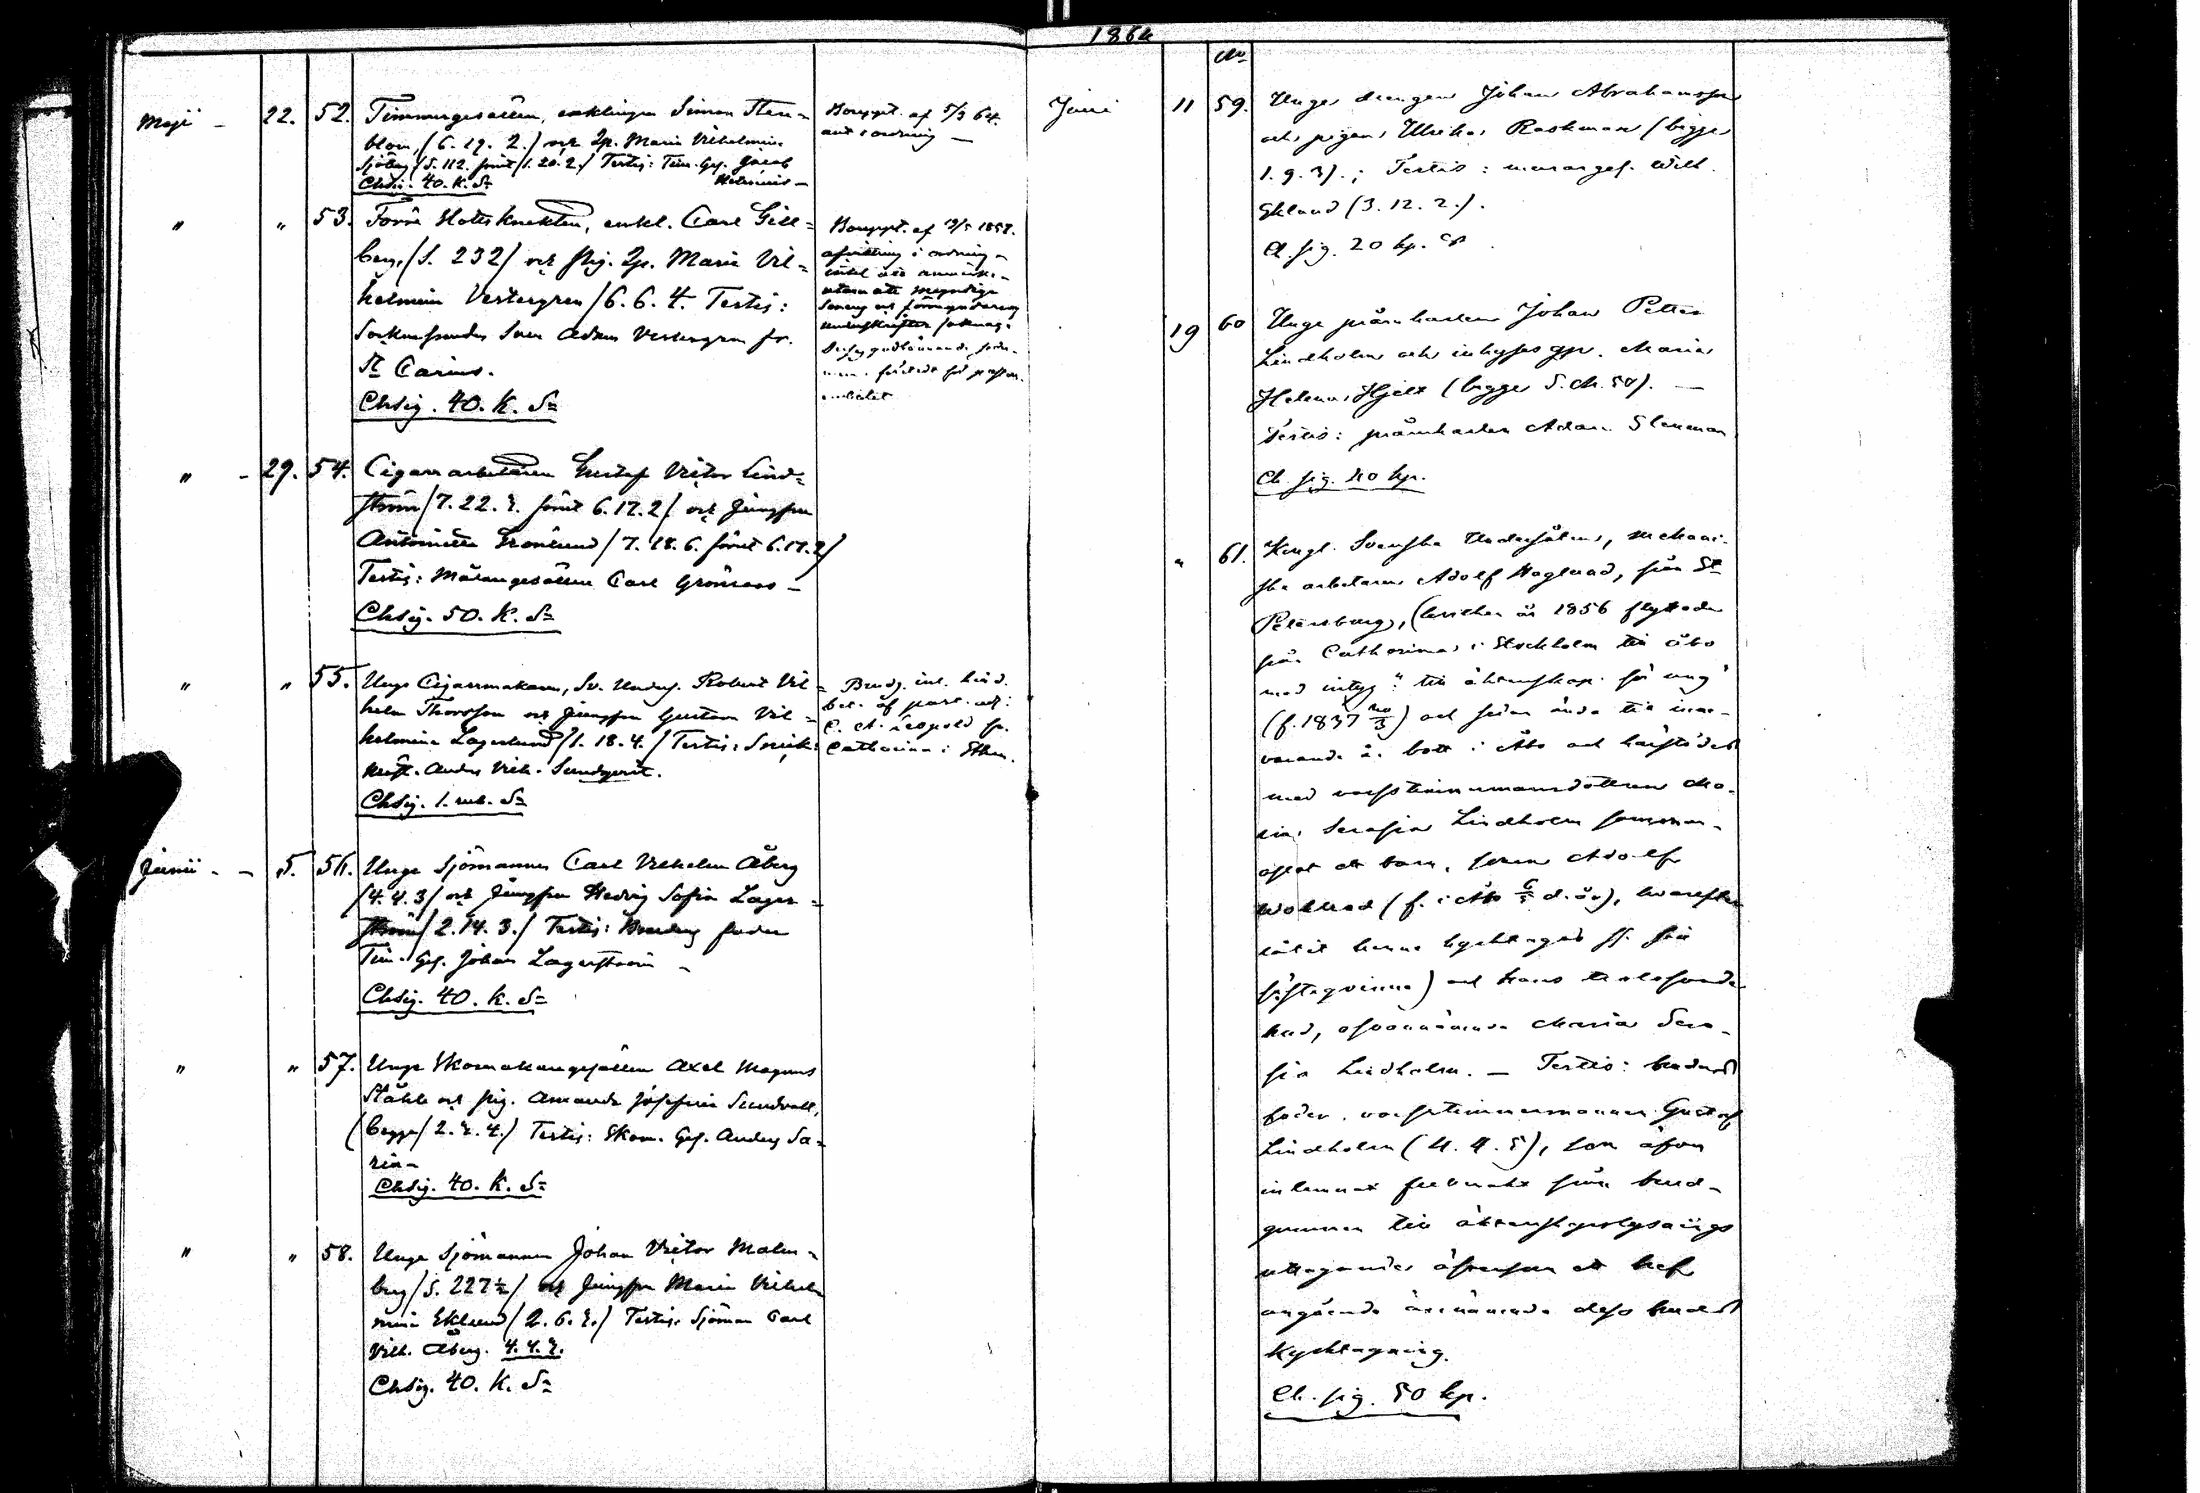 1864
Maji - 22. 52. Timmergesällen, enklingen Simon Sten-
blom, (6. 19. 2.) och Pp. Maria Vilhelmina
Sjöberg (S. 112. förut 1. 20. 2.) Testis: Tim. Ges. Jacob
Chsig. 40. K. Sr
Bouppt. af 5/3 64.
ant i ordning —
" " 53. Förre Hofrknekten, enkl. Carl Gill=
berg, (S. 232) och pig. Pp. Maria Vil=
helmina Vestergren (6. 6. 4. Testis:
Sven Adam Vestergren fr.
St Carins.
Chsig. 40. K. Sr
Bouppt. af 1857.
i ordning -
utom att myndige
underskrifter
" - 29. 54. Cigarrarbetaren Gustaf Victor Lind=
ström (7. 22. 2. förut 6. 17. 2) och Jungfru
Grönlund (7. 18. 6. förut 6. 17. 2)
Testis: Målaregesällen Carl Grönroos -
Chsig. 50. K. Sr
" " 55. Unge Cigarrmakaren, Sv. Unders. Robert Vil=
helm Thorsson och Jungfru Gustava Vil=
helmina Lagerlund (1. 18. 4.) Testis:
Anders Vilh. Sundqvist.
Chsig. 1. rub. Sr
Brudg. inl. hind.
bev. af past. adj:
C. A. Leopold fr.
Catharina i Sthm.
Junii - - 5. 56. Unge Sjömannen Carl Vilhelm Åberg
(4. 4. 3) och Jungfru Hedvig Sofia Lager=
ström (2. 14. 3.) Testis: Brudens fader
Tim. Ges. Johan Lagerström -
Chsig. 40. K. Sr
" " 57. Unge Skomakaregesällen Axel Magnus
Ståhle och pig. Amanda Josefina Sundvall,
(begge (2. 2. 4.) Testis: Skom. Ges. Anders Sa=
rin-
Chsig. 40. K. Sr
" " 58. Unge Sjömannen Johan Victor Malm=
berg (S. 227½) och Jungfru Maria Vilhel
mina Eklund (2. 6. 2.) Testis: Sjöman Carl
Vilh. Åberg. 4. 4. 2.
Chsig. 40. K. Sr
No
Juni 11 59. Unge drängen Johan Abrahamsson
och pigan Ulrika Raskman (begge
1. 9. 3).; Testis: murareges. Wilh.
Eklund (3. 12. 2.).
Ch. sig. 20 kp. Sr.
19 60 Unge pråmkarlen Johan Petter
Lindholm och inhyses qp. Maria
Helena Hjelt (begge S. M. 50). —
Testis: pråmkarlen Adam Stenman
Ch. sig. 40 kp.
" 61. Kongl. Svenska Undersåten, mekani-
ske arbetaren Adolf Haglund, från St
Petersburg, (hvilken år 1856 flyttade
från Catharina i Stockholm till Åbo
med intyg: "till äktenskap för ung"
(f. 1837 20/3) och sedan ända till inne-
varande år bott i Åbo och härstädes
med varfstimmermansdottren Ma-
ria Serafia Lindholm samman-
aflat ett barn, sonen Adolf
Wollrad (f. i Åbo d. år), hvarefter
låtit henne kyrktagas ss. sin
fästeqvinna) och hans trolofvade
brud, ofvannämnda Maria Sera-
fia Lindholm. — Testis: brudens
fader, varfstimmermannen Gustaf
Lindholm (4. 4. 5), som äfven
inlemnat fullmakt från brud-
gummen till äktenskapslysnings
uttagande äfvensom ett bref
angående dess bruds
kyrktagning.
Ch. sig. 50 kp.